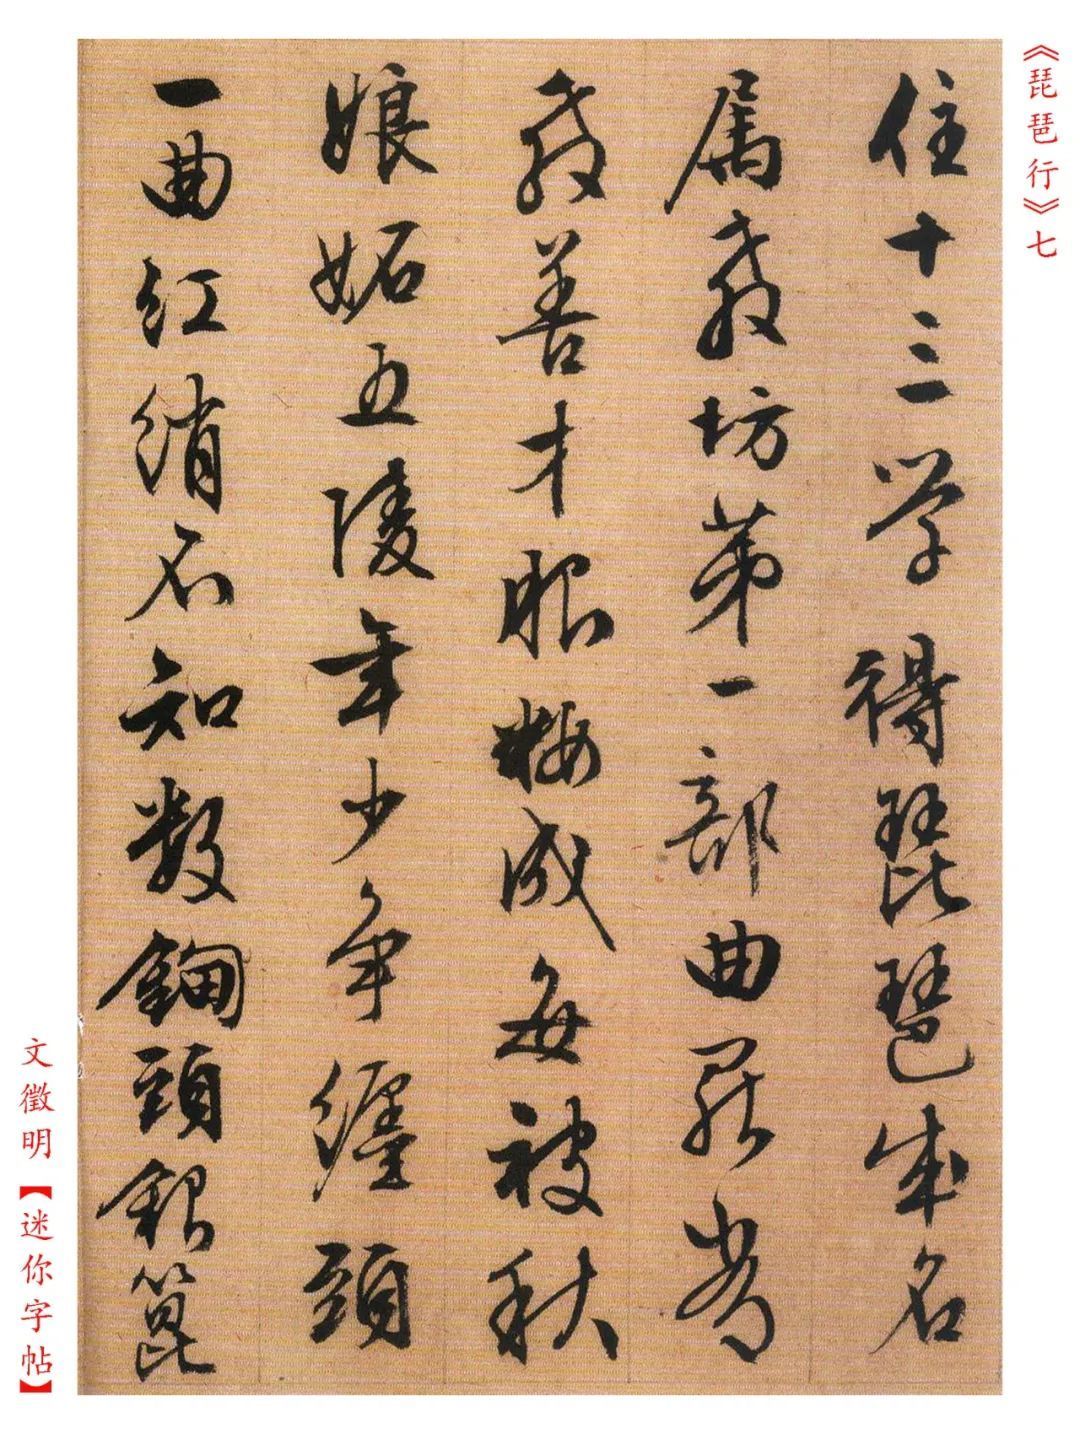 《琵琶行》七
住十三学得琵琶成名
属教坊第一部曲罷常
教善才服粧成每被秋
娘妬五陵年少争纏頭
一曲紅綃不知数鈿頭銀篦
文徵明【迷你字帖】